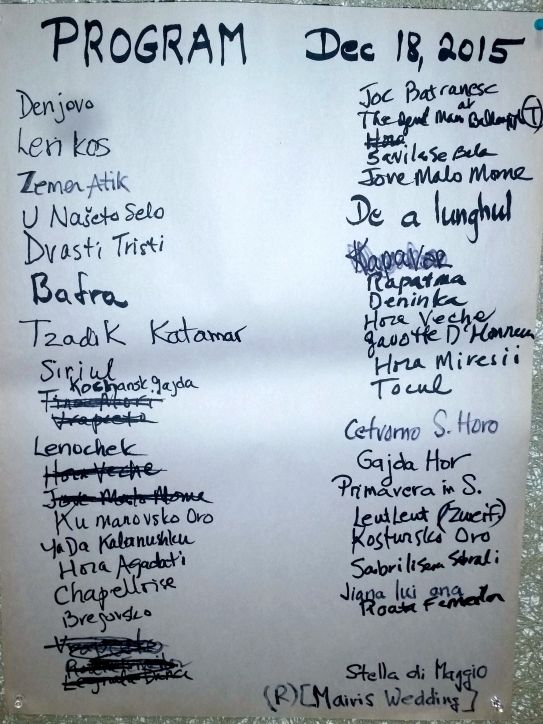 PROGRAM Dec 18, 2015
Denjovo
Leri kos
Zemer Atik
U Našeto Selo
Dvasti Tristi
Bafra
Tzadik Katamar
Siriul
Kochansk. gajda
Vrapceto
Lenochek
Hora Veche
Jove Malo Mome
Kumanovsko Oro
Ya Da Kalanushku
Hora Agadati
Chapelloise
Bregovsko
Vrapceto
Joc Batranesc
at
The Man (T)
Hora
Savila Se Bela
Jove Malo Mome
De a lunghul
Rapatma
Deninka
Hora Veche
Gavotte D'Honneur
Hora Miresii
Tocul
Cetvorno S. Horo
Gajda Hor
Primavera in S.
Leut Leut (Zwerif.)
Kostursko Oro
Sabrilisem Strali
Jiana lui ana
Roata Femeilor
Stella di Maggio
(R) [Mairis Wedding]